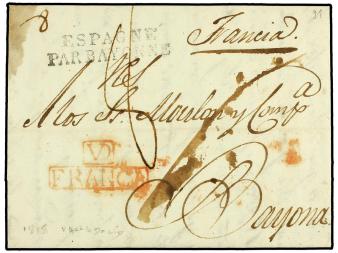 8
ESPAGNE
PAR BAYONNE
Francia.
31
A los Sres Moulon y Compa
VD
FRANCA
Bayona
1818